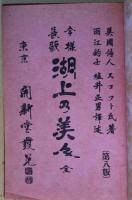 英國詩人 スコット氏著
爾江釣士 塩井正男譯述
(第八版)
今様長歌
湖上の美人 全
東京 開新堂發兌